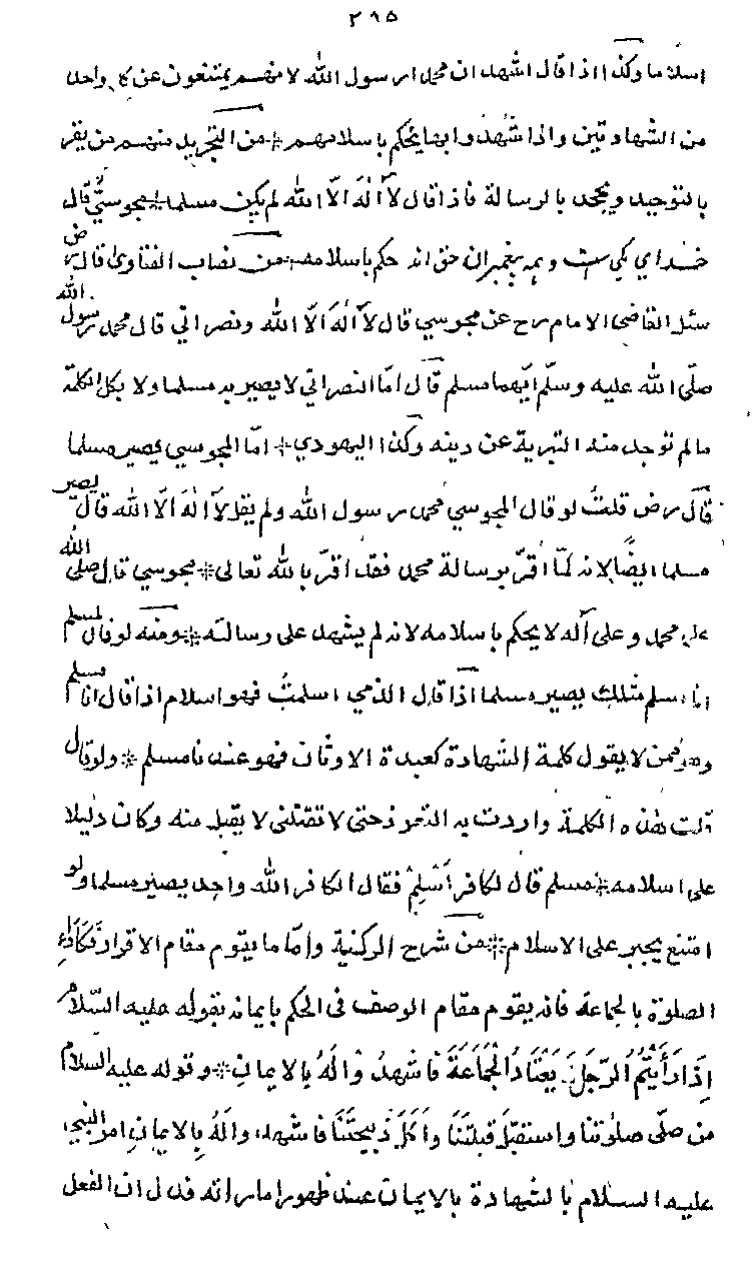 ٢٩٥
اسلاما وكذا اذا قال اشهد ان محمدا رسول الله لانهم يمتنعون عن كل واحد
من الشهادتين واذا شهدوا بها يحكم باسلامهم * من التجريد منهم من يقر
بالتوحيد ويجحد بالرسالة فاذا قال لا اله الا الله لم يكن مسلما * مجوسي قال
خداي يكي ست وهمه پيغمبران حق اند حكم باسلامه * من نصاب الفتاوى قال رض
سئل القاضي الامام رح عن مجوسي قال لا اله الا الله ونصراني قال محمد رسول الله
صلّى الله عليه وسلّم ايّهما مسلم قال امّا النصراني لا يصير به مسلما ولا بكل الكلمة
ما لم توجد منه التبرية عن دينه وكذا اليهودي * امّا المجوسي يصير مسلما
قال رض قلت لو قال المجوسي محمد رسول الله ولم يقل لا اله الا الله قال يصير
مسلما ايضًا لانه لمّا اقرّ برسالة محمد فقد اقرّ بالله تعالى * مجوسي قال صلى الله
على محمد وعلى آله لا يحكم باسلامه لانه لم يشهد على رسالته * ومنه لو قال لمسلم
انا مسلم مثلك يصير مسلما اذا قال الذمي اسلمتُ فهو اسلام اذا قال انا مسلم
وهو ممن لا يقول كلمة الشهادة كعبدة الاوثان فهو عندنا مسلم * ولو قال
قلت هذه الكلمة واردت به التعوذ حتى لا تقتلني لا يقبل منه وكان دليلا
على اسلامه * مسلم قال لكافر اَسْلِمْ فقال الكافر الله واحد يصير مسلما ولو
امتنع يجبر على الاسلام * من شرح الركنية وامّا ما يقوم مقام الاقرار فكاداء
الصلوة بالجماعة فانه يقوم مقام الوصف فى الحكم بايمانه بقوله عليه السّلام
اِذَا رَأَيْتُمُ الرَّجُلَ يَعْتَادُ الْجَمَاعَةَ فَاشهدُوا لَهُ بِالايمانِ * وقوله عليه السلام
من صلّى صلوتنا واستقبل قبلتنا واكل ذبيحتنا فاشهدوا له بالايمان امر النبي
عليه السلام بالشهادة بالايمان عند ظهور اماراته فدل ان الفعل